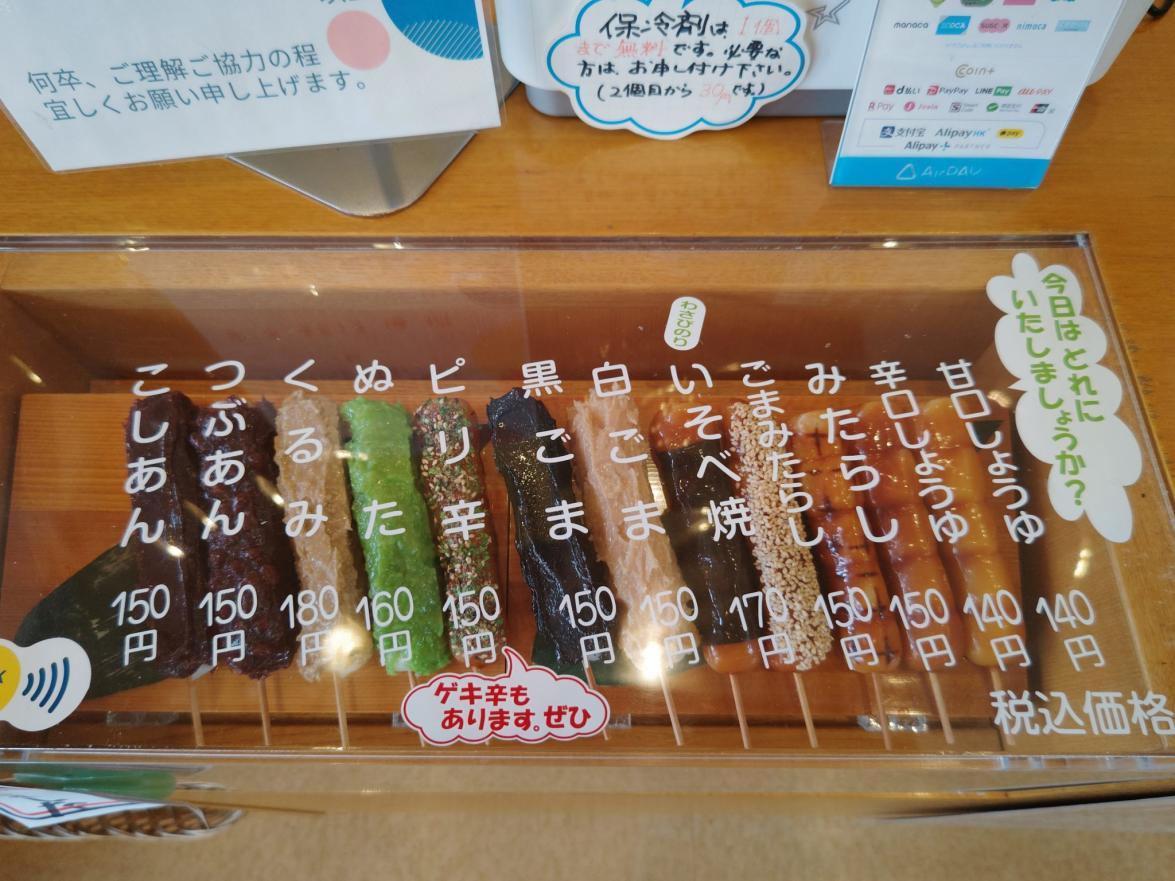 何卒、ご理解ご協力の程
宜しくお願い申し上げます。
保冷剤は1個
まで無料です。必要な
方は、お申し付け下さい。
(2個目から30円です)
manaca
SUGOCA
nimoca
Coin+
d払い PayPay LINE Pay au PAY
R Pay
支付宝 Alipay HK pay
Alipay+ PARTNER
AirPAY
今日はどれに
いたしましょうか?
わさびのり
甘口しょうゆ
辛口しょうゆ
みたらし
ごまみたらし
いそべ焼
白ごま
黒ごま
ピリ辛
ぬた
くるみ
つぶあん
こしあん
150円
150円
180円
160円
150円
150円
150円
170円
150円
150円
140円
140円
ゲキ辛も
あります。ぜひ
税込価格